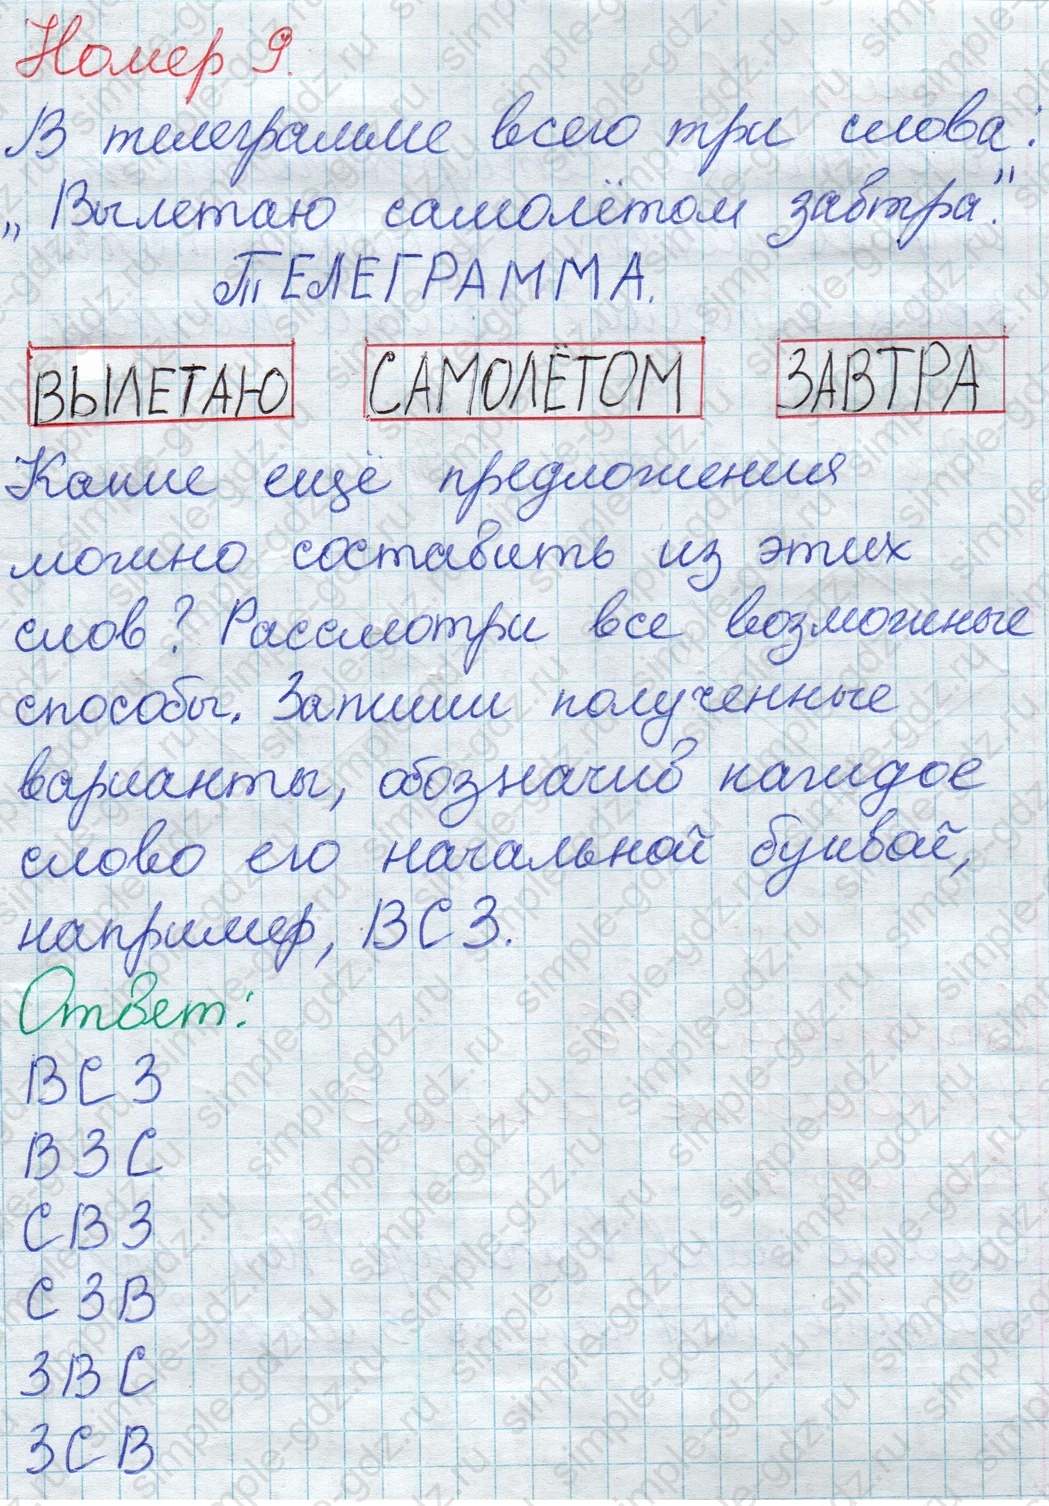 Номер 9.
В телеграмме всего три слова:
„Вылетаю самолётом завтра."
ТЕЛЕГРАММА.
ВЫЛЕТАЮ САМОЛЁТОМ ЗАВТРА
Какие ещё предложения
можно составить из этих
слов? Рассмотри все возможные
способы. Запиши полученные
варианты, обозначив каждое
слово его начальной буквой,
например, ВСЗ.
Ответ:
ВСЗ
ВЗС
СВЗ
СЗВ
ЗВС
ЗСВ
simple-gdz.ru